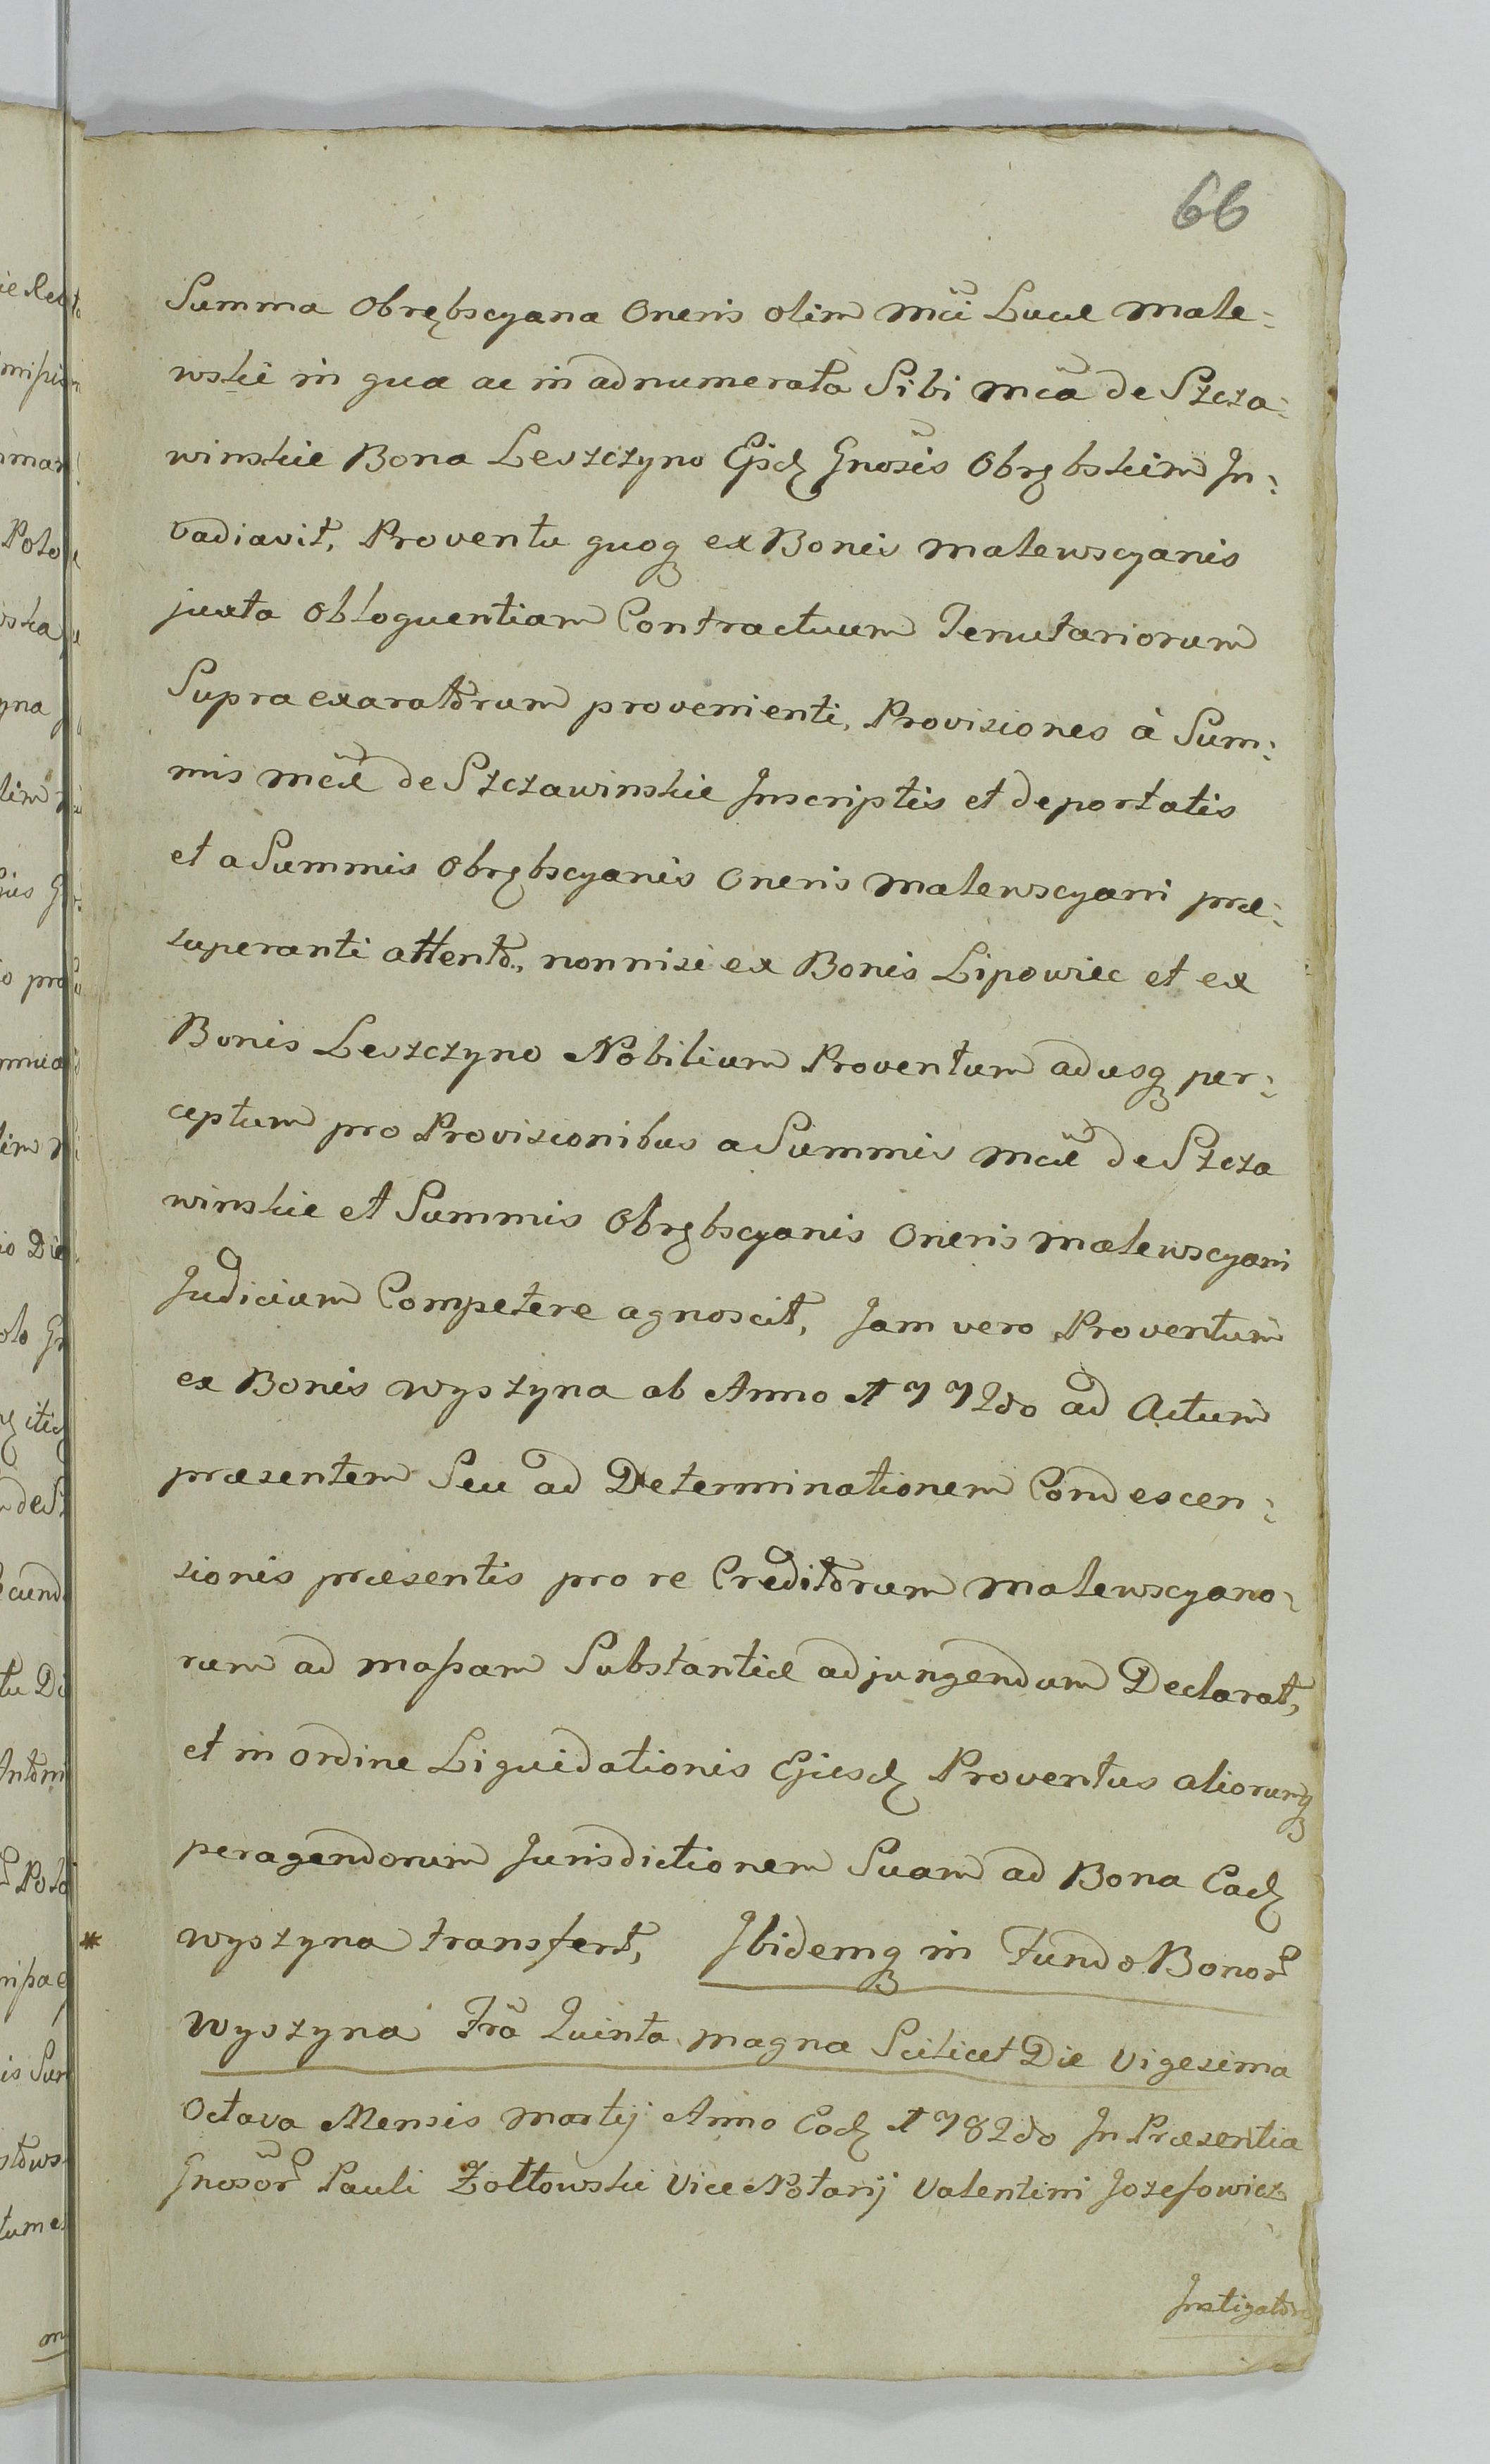 66
Summa Obrębscyana Oneris olim Mci Lucæ Male:
wski in qua ac in adnumerata Sibi Mca de Szcza:
winskie Bona Leszczyno Ejsd Gnosis Obrębskim In:
vadiavit, Proventu quoq ex Bonis Malewscyanis
juxta Obloquentiam Contractuum Tenutariorum
Supra exaratorum provenienti, Provisiones à Sum:
mis Mcæ de Szczawinskie Inscriptis et deportatis
et a Summis Obrębscyanis Oneris Malewscyani præ:
superanti attento, nonnisi ex Bonis Lipowiec et ex
Bonis Leszczyno Nobilium Proventum adusq per:
ceptum pro Provisionibus a Summis Mcæ de Szcza
winskie et Summis Obrębscyanis Oneris Malewscyani
Judicium Competere agnoscit, Jam vero Proventum
ex Bonis Wyszyna ab Anno 1772do ad Actum
præsentem Seu ad Determinationem Condescen:
sionis præsentis pro re Creditorum Malewscyano:
rum ad massam Substantiæ adjungendum Declarat,
et in ordine Liquidationis Ejusd Proventus aliorumq
peragendorum Jurisdictionem Suam ad Bona Ead
* Wyszyna transfert, Ibidemq in Fundo Bonor
Wyszyna Fra Quinta magna Scilicet Die Vigesima
Octava Mensis Martij Anno Eod 1782do In Præsentia
Gnosor Pauli Zołtowski Vice Notarij Valentini Jozefowicz
Instigatoris